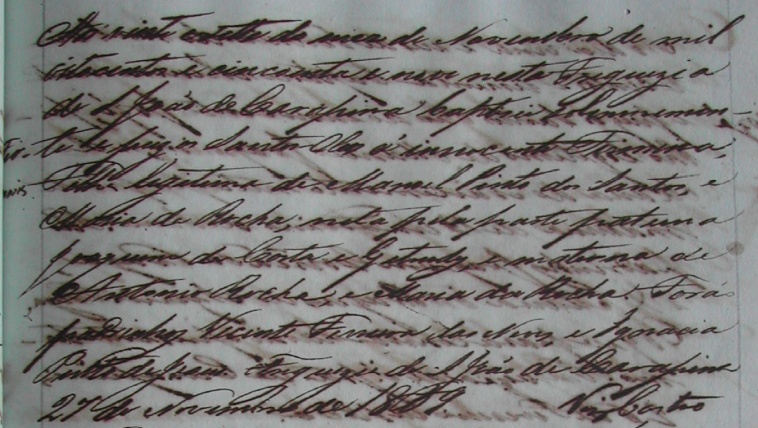 Aos vinte e sette do mes de Novembro de mil
oitocentos e cincoenta e nove nesta Freguezia
de S João de Carapina baptizei solemnemen
te e puz os Santos Oleos á innocente
Filha legitima de Manoel Pinto dos Santos, e
Maria da Rocha; neta pela parte paterna
Joaquim da Costa e Getrudes e materna de
Antonio Rocha, e Maria da Rocha. Forão
padrinhos Vicente Ferreira das Neves, e Ignacia
Pinto Freguezia de S João de Carapina
27 de Novembro de 1859